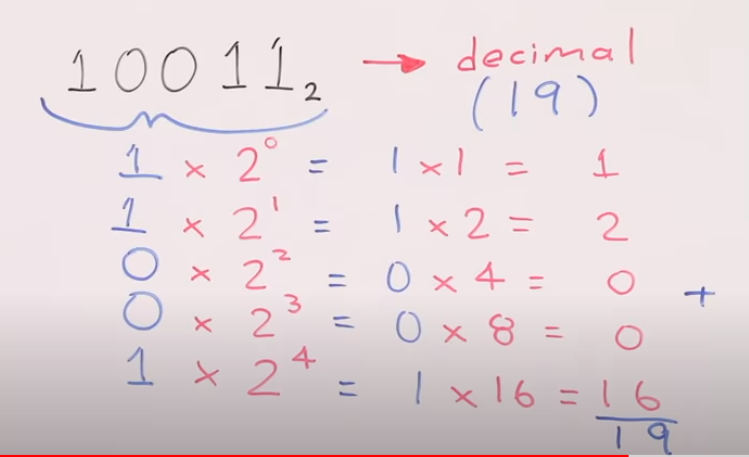 10011₂ → decimal
(19)
1 × 2⁰ = 1 × 1 = 1
1 × 2¹ = 1 × 2 = 2
0 × 2² = 0 × 4 = 0 +
0 × 2³ = 0 × 8 = 0
1 × 2⁴ = 1 × 16 = 16
19